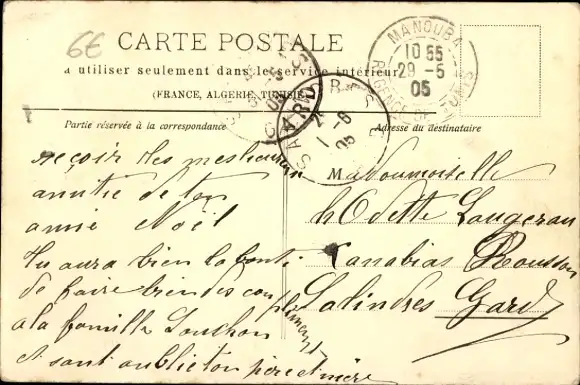 6€
CARTE POSTALE
à utiliser seulement dans le service intérieur
(FRANCE, ALGERIE, TUNISIE)
MANOUBA
10 55
29 -5
05
REGENCE DE TUNIS
GARD
SALINDRES
1 -6
05
Partie réservée à la correspondance
Adresse du destinataire
reçoir des meilleurs
amitié de ton
amie Noël
tu aura bien la bonté
de faire bien des compliments
a la famille Souchon
et sant oublie ton père et mère
Mademoiselle
Odette Laugeran
Salindres Gard